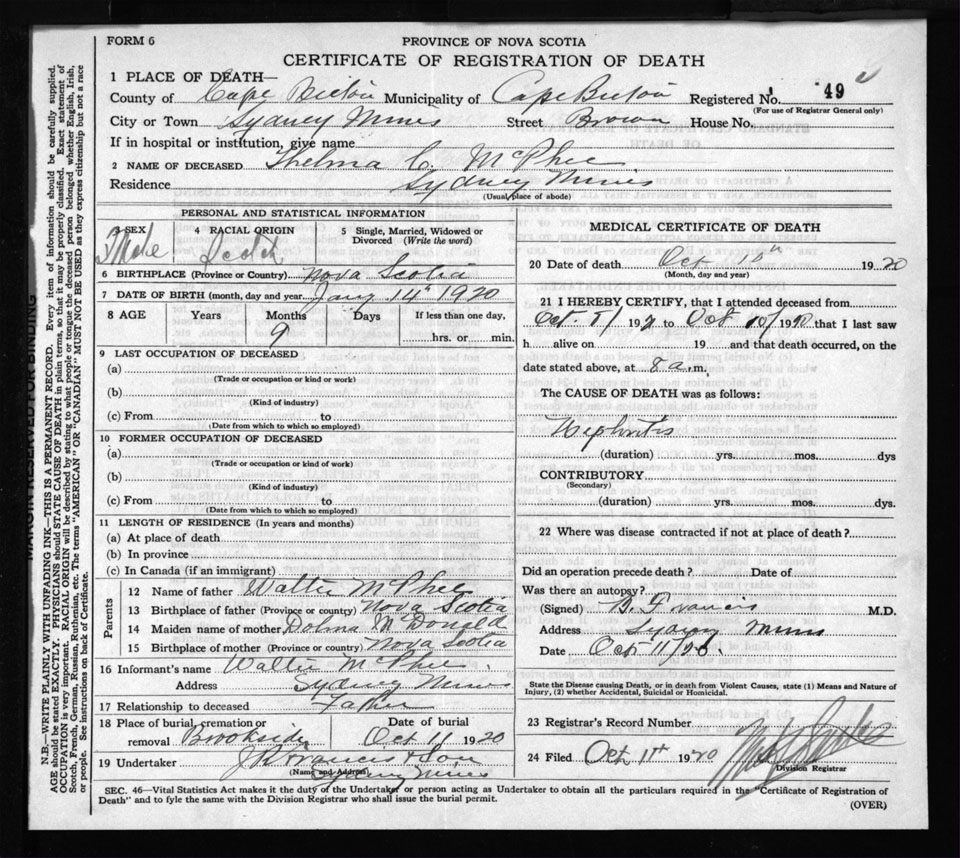 FORM 6
PROVINCE OF NOVA SCOTIA
CERTIFICATE OF REGISTRATION OF DEATH
1 PLACE OF DEATH—
County of Cape Breton Municipality of Cape Breton Registered No. 49
(For use of Registrar General only)
City or Town Sydney Mines Street Brown House No.
If in hospital or institution, give name
2 NAME OF DECEASED Thelma C. McPhee
Residence Sydney Mines
(Usual place of abode)
PERSONAL AND STATISTICAL INFORMATION
3 SEX 4 RACIAL ORIGIN 5 Single, Married, Widowed or
Divorced (Write the word)
Male Scotch
6 BIRTHPLACE (Province or Country) Nova Scotia
7 DATE OF BIRTH (month, day and year) Jany 14th 1920
8 AGE Years Months Days If less than one day,
9
hrs. or min.
9 LAST OCCUPATION OF DECEASED
(a)
(Trade or occupation or kind or work)
(b)
(Kind of industry)
(c) From to
(Date from which to which so employed)
10 FORMER OCCUPATION OF DECEASED
(a)
(Trade or occupation or kind of work)
(b)
(Kind of industry)
(c) From to
(Date from which to which so employed)
11 LENGTH OF RESIDENCE (In years and months)
(a) At place of death
(b) In province
(c) In Canada (if an immigrant)
Parents
12 Name of father Walter McPhee
13 Birthplace of father (Province or country) Nova Scotia
14 Maiden name of mother Dolma McDonald
15 Birthplace of mother (Province or country) Nova Scotia
16 Informant's name Walter McPhee
Address Sydney Mines
17 Relationship to deceased Father
18 Place of burial, cremation or Date of burial
removal Brookside Oct 11 1920
19 Undertaker J R Francis & Son
(Name and Address) Sydney Mines
MEDICAL CERTIFICATE OF DEATH
20 Date of death Oct 10th 1920
(Month, day and year)
21 I HEREBY CERTIFY, that I attended deceased from
Oct 192 to Oct 10/ 1920 that I last saw
h alive on 19 and that death occurred, on the
date stated above, at 8 a.m.
The CAUSE OF DEATH was as follows:
Nephritis
(duration) yrs. mos. dys
CONTRIBUTORY
(Secondary)
(duration) yrs. mos. dys.
22 Where was disease contracted if not at place of death?
Did an operation precede death? Date of
Was there an autopsy?
(Signed) B. Francis M.D.
Address Sydney Mines
Date Oct 11/20.
State the Disease causing Death, or in death from Violent Causes, state (1) Means and Nature of
Injury, (2) whether Accidental, Suicidal or Homicidal.
23 Registrar's Record Number
24 Filed Oct 11th 1920
Division Registrar
SEC. 46—Vital Statistics Act makes it the duty of the Undertaker or person acting as Undertaker to obtain all the particulars required in the "Certificate of Registration of
Death" and to fyle the same with the Division Registrar who shall issue the burial permit.
(OVER)
MARGIN RESERVED FOR BINDING
N.B.—WRITE PLAINLY WITH UNFADING INK—THIS IS A PERMANENT RECORD. Every item of information should be carefully supplied.
AGE should be stated EXACTLY. PHYSICIANS should STATE CAUSE OF DEATH in plain terms, so that it may be properly classified. Exact statement of
OCCUPATION is very important. RACIAL ORIGIN will be described by stating to what people or tongue the deceased person belonged whether English, Irish,
Scotch, French, German, Russian, Ruthenian, etc. The terms "AMERICAN" OR "CANADIAN" MUST NOT BE USED as they express citizenship but not a race
or people. See instructions on back of Certificate.